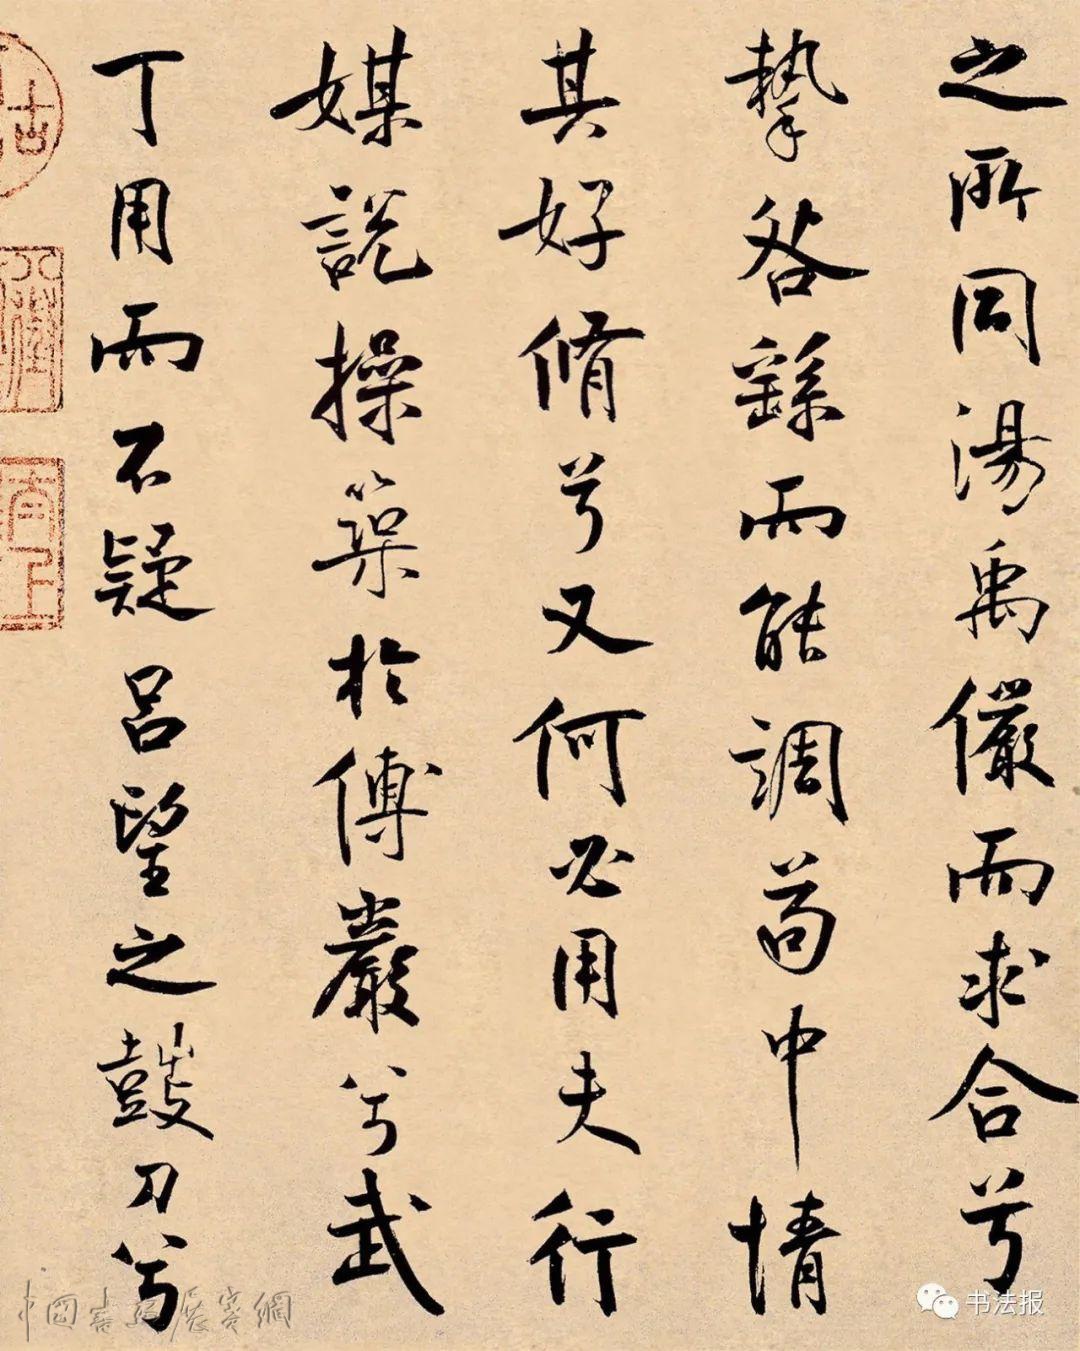 之所同湯禹儼而求合兮
摯咎繇而能調苟中情
其好脩兮又何必用夫行
媒説操築於傅巖兮武
丁用而不疑呂望之鼓刀兮
中國書法展賽網
书法报